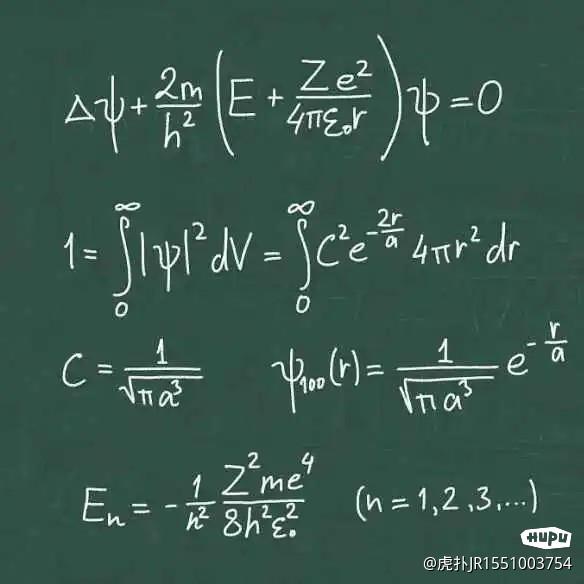 Δψ + 2m/h² (E + Ze²/4πε₀r) ψ = 0
1 = ∫₀^∞ |ψ|² dV = ∫₀^∞ C² e^(-2r/a) 4πr² dr
C = 1/√(πa³)    ψ₁₀₀(r) = 1/√(πa³) e^(-r/a)
Eₙ = - 1/n² Z²me⁴/8h²ε₀² (n = 1, 2, 3, ...)
HUPU
@虎扑JR1551003754